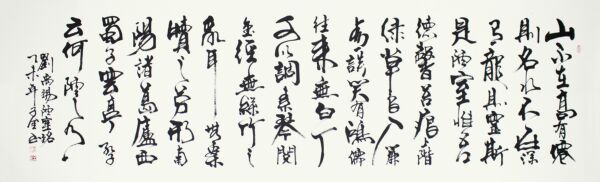 山不在高有僊
則名水不在深
有龍則靈斯
是陋室惟吾
德馨苔痕上階
綠草色入簾
青談笑有鴻儒
往來無白丁
可以調素琴閱
金經無絲竹之
亂耳無案
牘之勞形南
陽諸葛廬西
蜀子雲亭孔子
云何陋之有
劉禹錫陋室銘